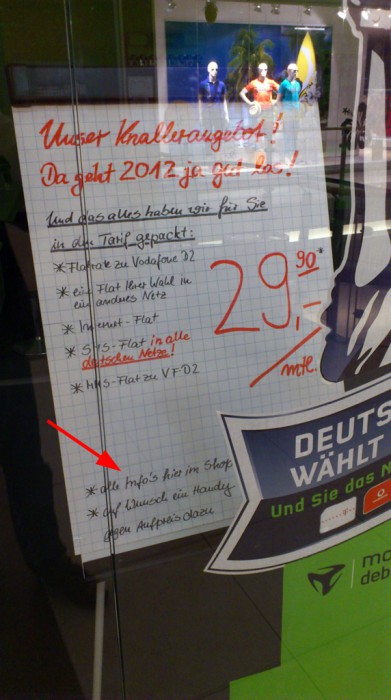 Unser Knallerangebot!
Da geht 2012 ja gut los!
Und das alles haben wir für Sie
in den Tarif gepackt:
* Flatrate zu Vodafone D2
* eine Flat Ihrer Wahl in
ein anderes Netz
* Internet-Flat
* SMS-Flat in alle
deutschen Netze!
* MMS-Flat zu VF D2
29,90*
mtl.
* alle Info's hier im Shop
* auf Wunsch ein Handy
gegen Aufpreis dazu
DEUTS
WÄHLT
Und Sie das N
mo
deb